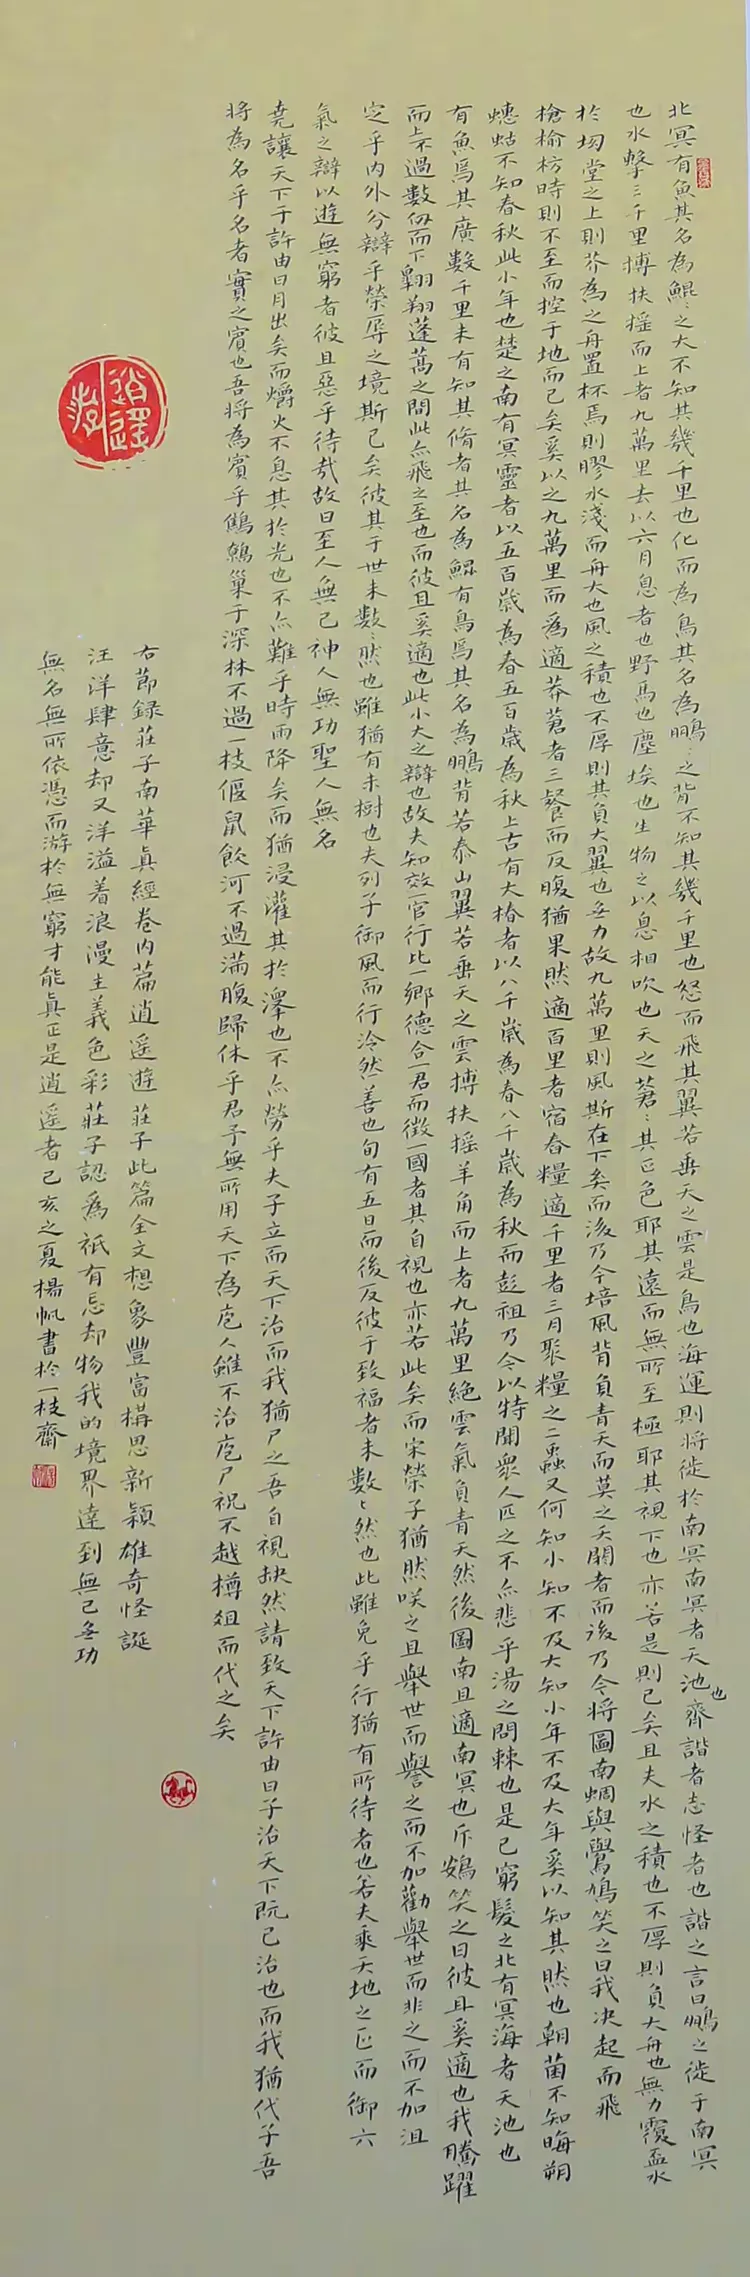 北冥有魚其名為鯤〻之大不知其幾千里也化而為鳥其名為鵬〻之背不知其幾千里也怒而飛其翼若垂天之雲是鳥也海運則將徙於南冥南冥者天池也齊諧者志怪者也諧之言曰鵬之徙于南冥
也水擊三千里搏扶摇而上者九萬里去以六月息者也野馬也塵埃也生物之以息相吹也天之蒼〻其正色耶其遠而無所至極耶其視下也亦若是則已矣且夫水之積也不厚則負大舟也無力覆盃水
於坳堂之上則芥為之舟置杯焉則膠水淺而舟大也風之積也不厚則其負大翼也無力故九萬里則風斯在下矣而後乃今培風背負青天而莫之夭閼者而後乃今將圖南蜩與鷽鳩笑之曰我决起而飛
槍榆枋時則不至而控于地而已矣奚以之九萬里而為適莽蒼者三飡而反腹猶果然適百里者宿舂糧適千里者三月聚糧之二蟲又何知小知不及大知小年不及大年奚以知其然也朝菌不知晦朔
蟪蛄不知春秋此小年也楚之南有冥靈者以五百歲為春五百歲為秋上古有大椿者以八千歲為春八千歲為秋而彭祖乃今以特聞衆人匹之不亦悲乎湯之問棘也是已窮髮之北有冥海者天池也
有魚焉其廣數千里未有知其脩者其名為鯤有鳥焉其名為鵬背若泰山翼若垂天之雲搏扶摇羊角而上者九萬里絶雲氣負青天然後圖南且適南冥也斥鴳笑之曰彼且奚適也我騰躍
而上不過數仞而下翱翔蓬蒿之間此亦飛之至也而彼且奚適也此小大之辯也故夫知效一官行比一鄉德合一君而徵一國者其自視也亦若此矣而宋榮子猶然笑之且舉世而譽之而不加勸舉世而非之而不加沮
定乎内外分辯乎榮辱之境斯已矣彼其于世未數〻然也雖猶有未樹也夫列子御風而行泠然善也旬有五日而後反彼于致福者未數〻然也此雖免乎行猶有所待者也若夫乘天地之正而御六
氣之辯以遊無窮者彼且惡乎待哉故曰至人無己神人無功聖人無名
堯讓天下于許由曰日月出矣而爝火不息其於光也不亦難乎時雨降矣而猶浸灌其於澤也不亦勞乎夫子立而天下治而我猶尸之吾自視缺然請致天下許由曰子治天下既已治也而我猶代子吾
將為名乎名者實之賓也吾將為賓乎鷦鷯巢于深林不過一枝偃鼠飲河不過滿腹歸休乎君予無所用天下為庖人雖不治庖尸祝不越樽俎而代之矣
逍遥游
右節録莊子南華真經卷内篇逍遥遊莊子此篇全文想象豐富構思新穎雄奇怪誕
汪洋肆意却又洋溢着浪漫主義色彩莊子認為衹有忘却物我的境界達到無己無功
無名無所依憑而游於無窮才能真正是逍遥者己亥之夏楊帆書於一枝齋